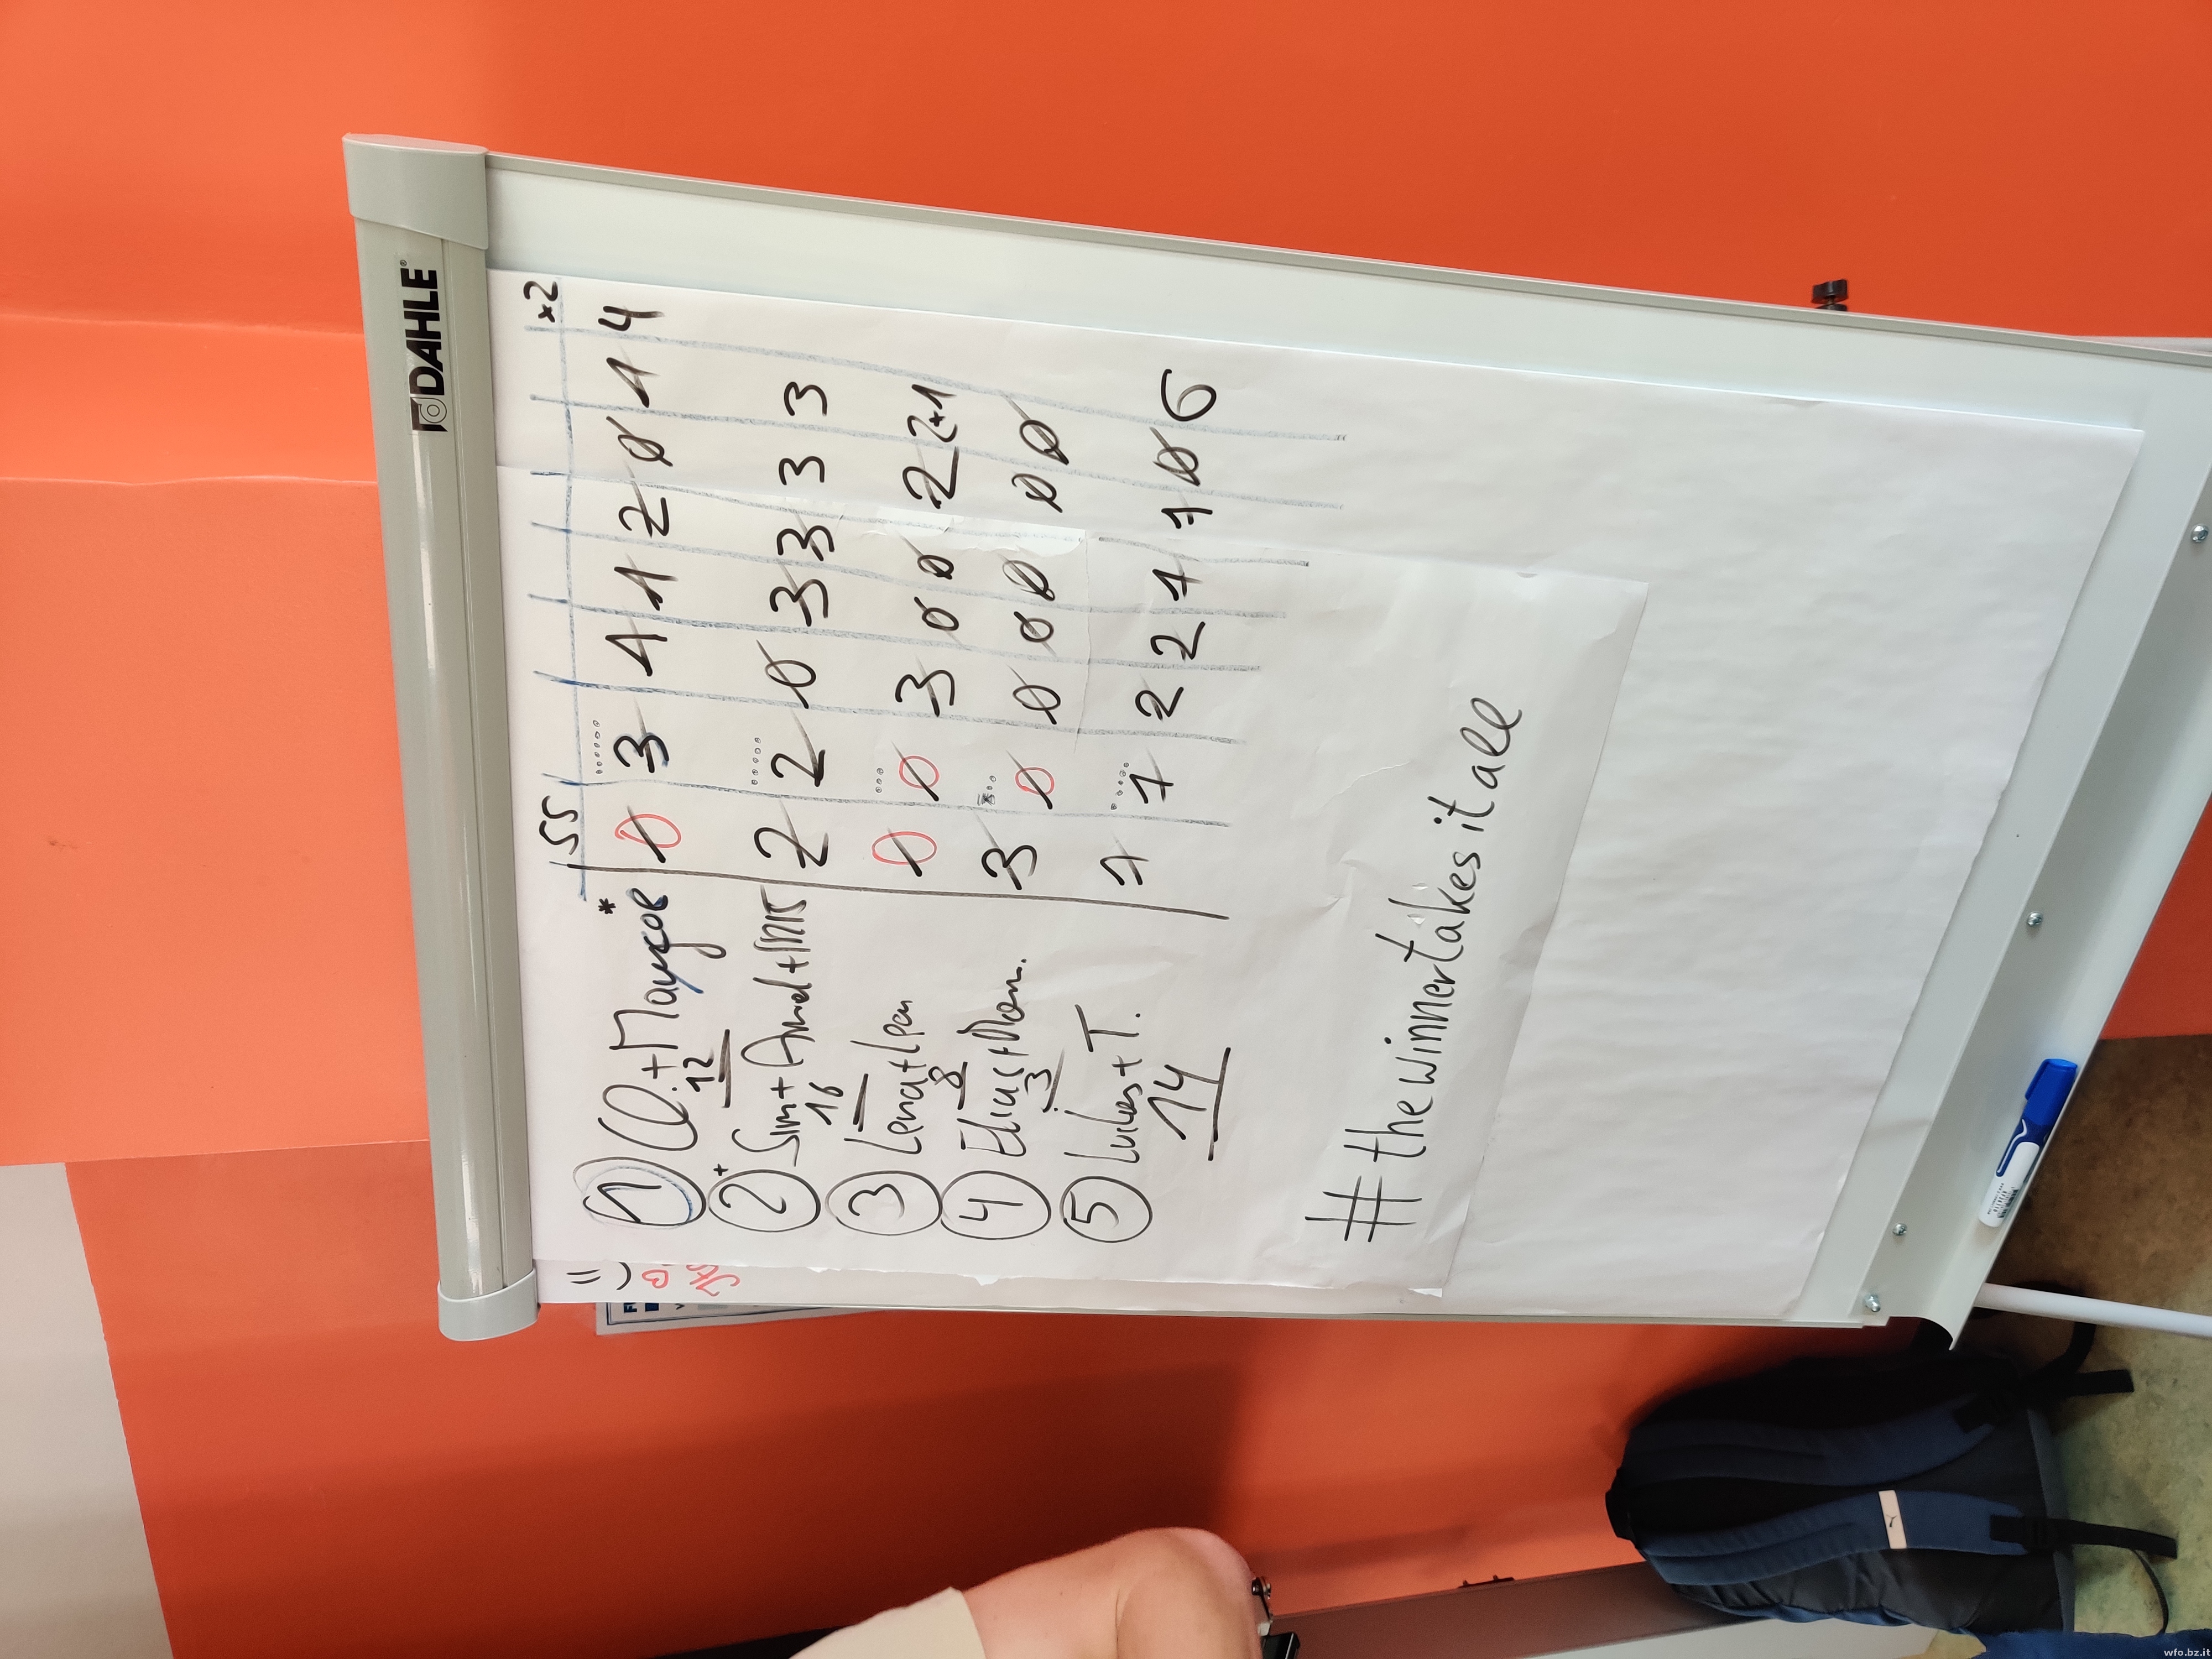 DAHLE
SS x2
① + * 0 3 1 1 2 0 1 4
12
②+ Sim + + 2 2 0 3 3 3 3
16
③ Lena + Lea 0 0 3 0 0 2 2+1
8
④ Elias + 3 0 0 0 0 0 0
3
⑤ Lukas + T. 1 1 2 2 1 1 0 6
14
#thewinnertakesitall
wfo.bz.it